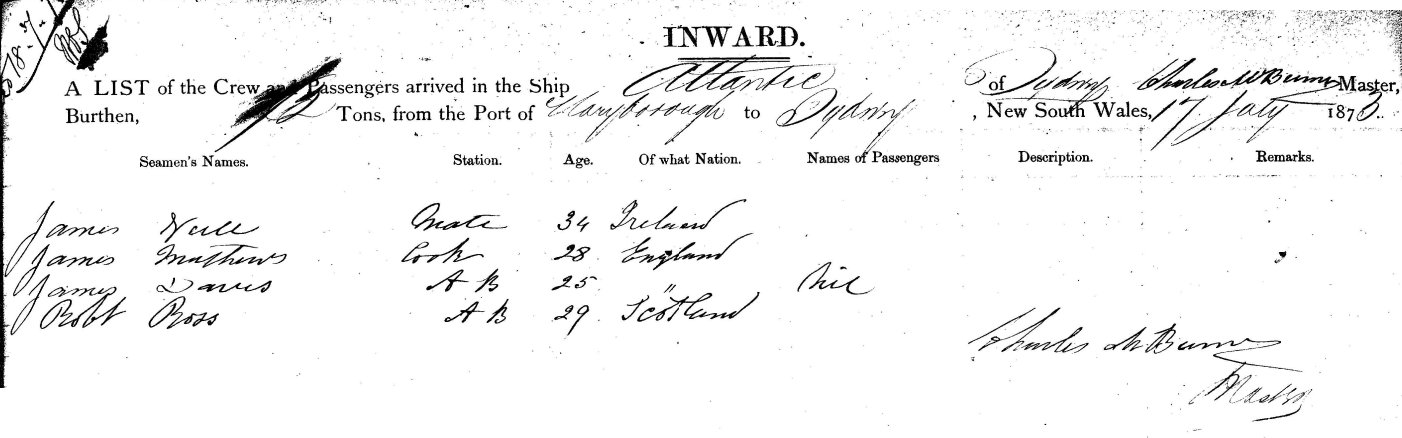 INWARD.
A LIST of the Crew and Passengers arrived in the Ship Atlantic of Sydney Charles McBurney Master,
Burthen, Tons, from the Port of Maryborough to Sydney , New South Wales, 17 Jaty 1873.
Seamen's Names. Station. Age. Of what Nation. Names of Passengers Description. Remarks.
James Neill Mate 34 Ireland
James Mathews Cook 28 England
James Daves A B 25 " Nil
Robt Ross A B 29 Scotland
Charles McBurney
Master